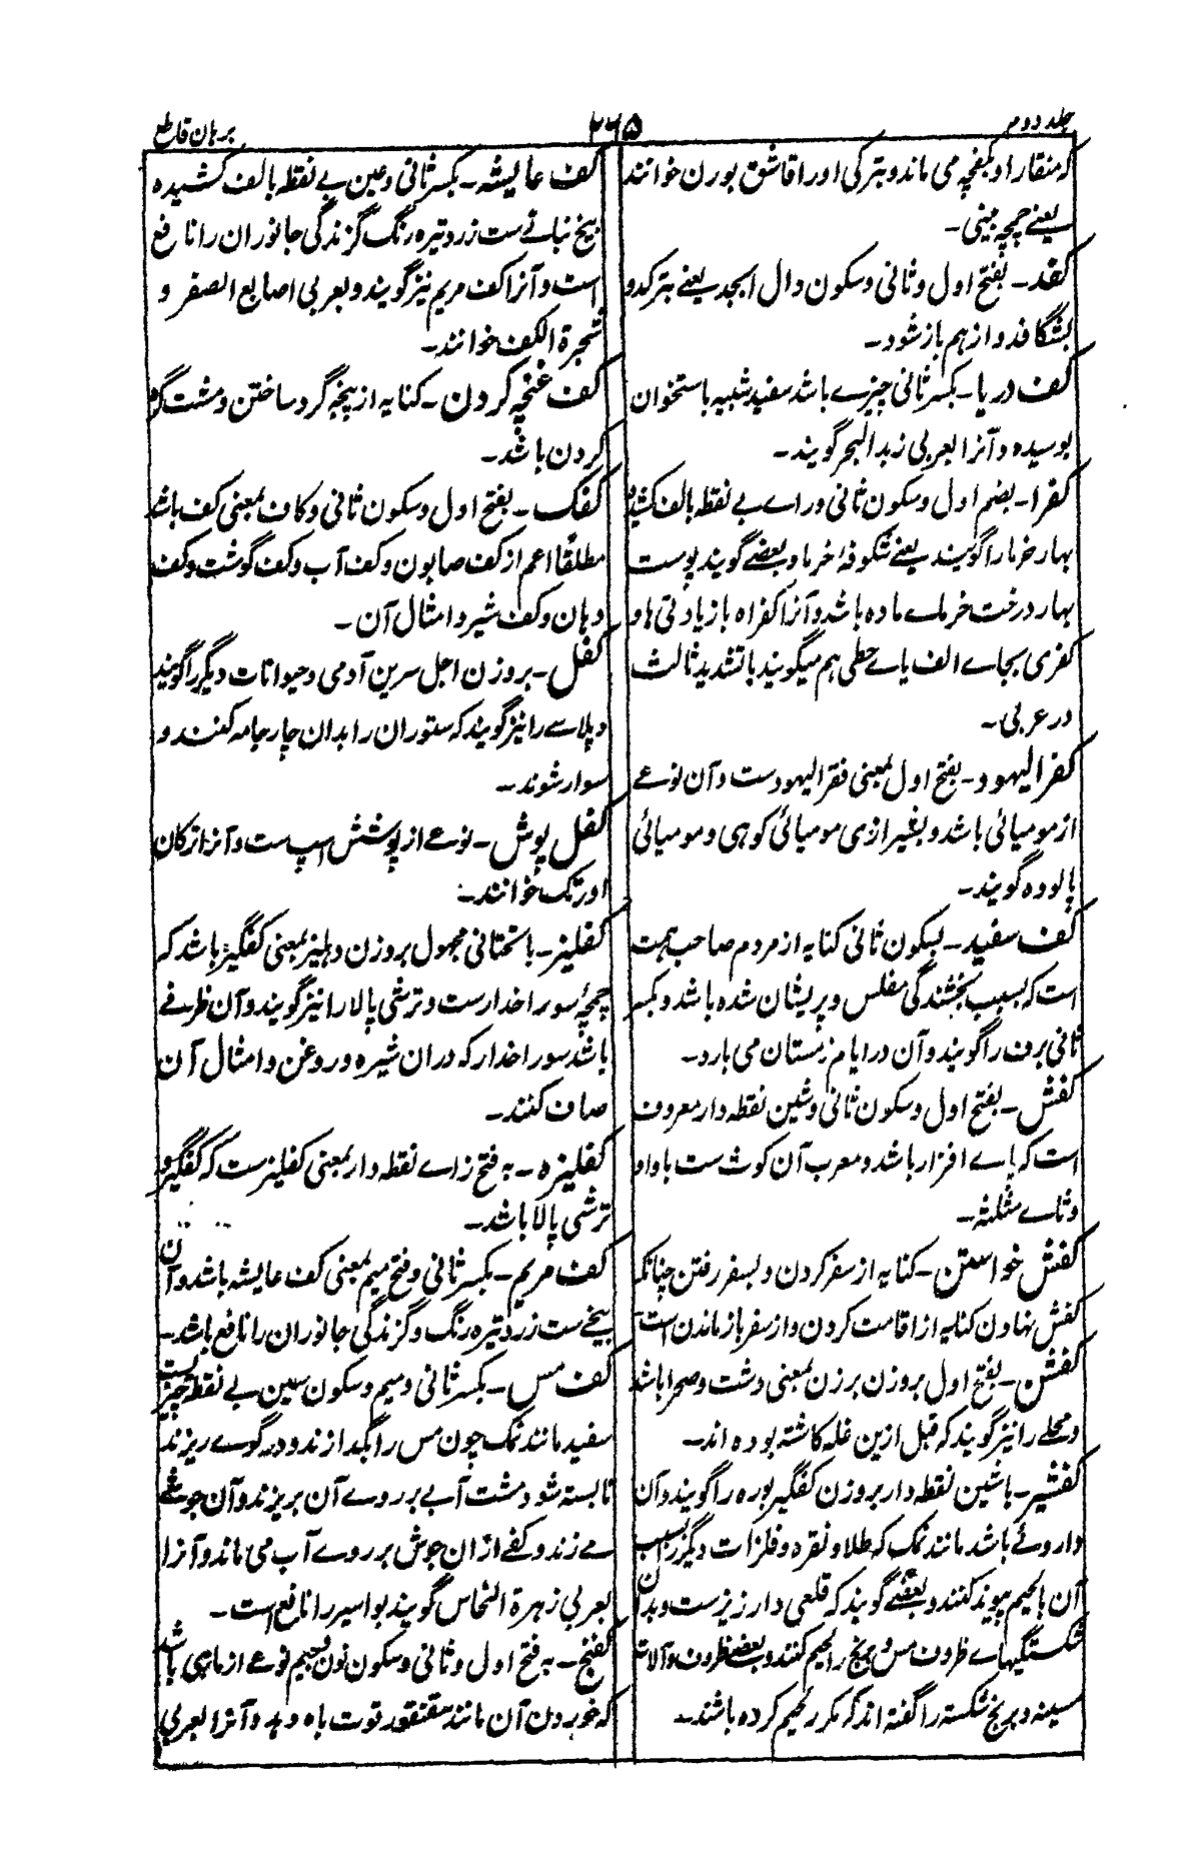 جلد دوم
۲۶۵
برہان قاطع
که منقار او بکفچه می ماند و بترکی اورا قاشق بورن خوانند
یعنے چمچه بینی۔
کفد۔ بفتح اول و ثانی و سکون دال ابجد یعنے بترکد و
بشگافد و از هم باز شود۔
کف دریا۔ بکسر ثانی چیزے باشد سفید شبیه باستخوان
بوسیده و آنرا بعربی زبد البحر گویند۔
کفرا۔ بضم اول و سکون ثانی و راے بے نقطه بالف کشیده
بهار خرما را گویند یعنے شکوفهٔ خرما و بعضے گویند پوست
بهار درخت خرماے ماده باشد و آنرا کفراه بازیادتی ها و
کفری بجاے الف یاے حطی هم میگویند با تشدید ثالث
در عربی۔
کفر الیهود۔ بفتح اول بمعنی فقر الیهودست و آن نوعے
از مومیائی باشد و بغیر ازی مومیائی کوهی و مومیائی
پالوده گویند۔
کف سفید۔ بسکون ثانی کنایه از مردم صاحب همت
است که بسبب بخشندگی مفلس و پریشان شده باشد و بکسر
ثانی برف را گویند و آن در ایام زمستان می بارد۔
کفش۔ بفتح اول و سکون ثانی و شین نقطه دار معروف
است که پاے افزار باشد و معرب آن کوث ست با واو
و ثاے مثلثه۔
کفش خواستن۔ کنایه از سفر کردن و بسفر رفتن چنانکه
کفش نهادن کنایه از اقامت کردن و از سفر باز ماندن است
کفشن۔ بفتح اول بروزن برزن بمعنی دشت و صحرا باشد
و محلے را نیز گویند که قبل ازین غله کاشته بوده اند۔
کفشیر۔ باشین نقطه دار بروزن کفگیر بوره را گویند و آن
داروئے باشد مانند نمک که طلا و نقره و فلزات دیگر را بسبب
آن بلحیم پیوند کنند و بعضے گویند که قلعی دار زیز ست و بدان
شکستگیهاے ظروف مس و برنج را لحیم کنند و بعضے ظروف و آلات
مسینه و برنج شکسته را گفته اند که مکرر لحیم کرده باشند۔
کف عایشه۔ بکسر ثانی و عین بے نقطه بالف کشیده
بیخ نباتے ست زرد تیره رنگ گزندگی جانوران را نافع
است و آنرا کف مریم نیز گویند و بعربی اصابع الصفر و
شجرة الکف خوانند۔
کف غنچه کردن۔ کنایه از پنجه گرد ساختن و مشت گره
کردن باشد۔
کفک۔ بفتح اول و سکون ثانی و کاف بمعنی کف باشد
مطلقًا اعم از کف صابون و کف آب و کف گوشت و کف
دهان و کف شیر و امثال آن۔
کفل۔ بروزن اجل سرین آدمی و حیوانات دیگر را گویند
و پلاسے را نیز گویند که ستوران را بدان چار جامه کنند و
سوار شوند۔
کفل پوش۔ نوعے از پوشش اسپ ست و آنرا ترکان
اورتک خوانند۔
کفلیز۔ با تحتانی مجهول بروزن دهلیز بمعنی کفگیر باشد که
چمچهٔ سوراخدارست و ترشی پالا را نیز گویند و آن ظرفے
باشد سوراخدار که دران شیره و روغن و امثال آن
صاف کنند۔
کفلیزه۔ به فتح زاے نقطه دار بمعنی کفلیزست که کفگیر و
ترشی پالا باشد۔
کف مریم۔ بکسر ثانی و فتح میم بمعنی کف عایشه باشد و آن
بیخے ست زرد تیره رنگ و گزندگی جانوران را نافع باشد۔
کف مس۔ بکسر ثانی و میم و سکون سین بے نقطه چیزیست
سفید مانند نمک چون مس را بگدازند و در گوے ریزند
تا بسته شود مشت آبے بر روے آن بریزند و آن جوشے
مے زند و کفے ازان جوش بر روے آب می ماند و آنرا
بعربی زهرة النحاس گویند بواسیر را نافع است۔
کفنج۔ به فتح اول و ثانی و سکون نون و جیم نوعے از ماهی باشد
که خوردن آن مانند سقنقور قوت باه دهد و آنرا بعربی